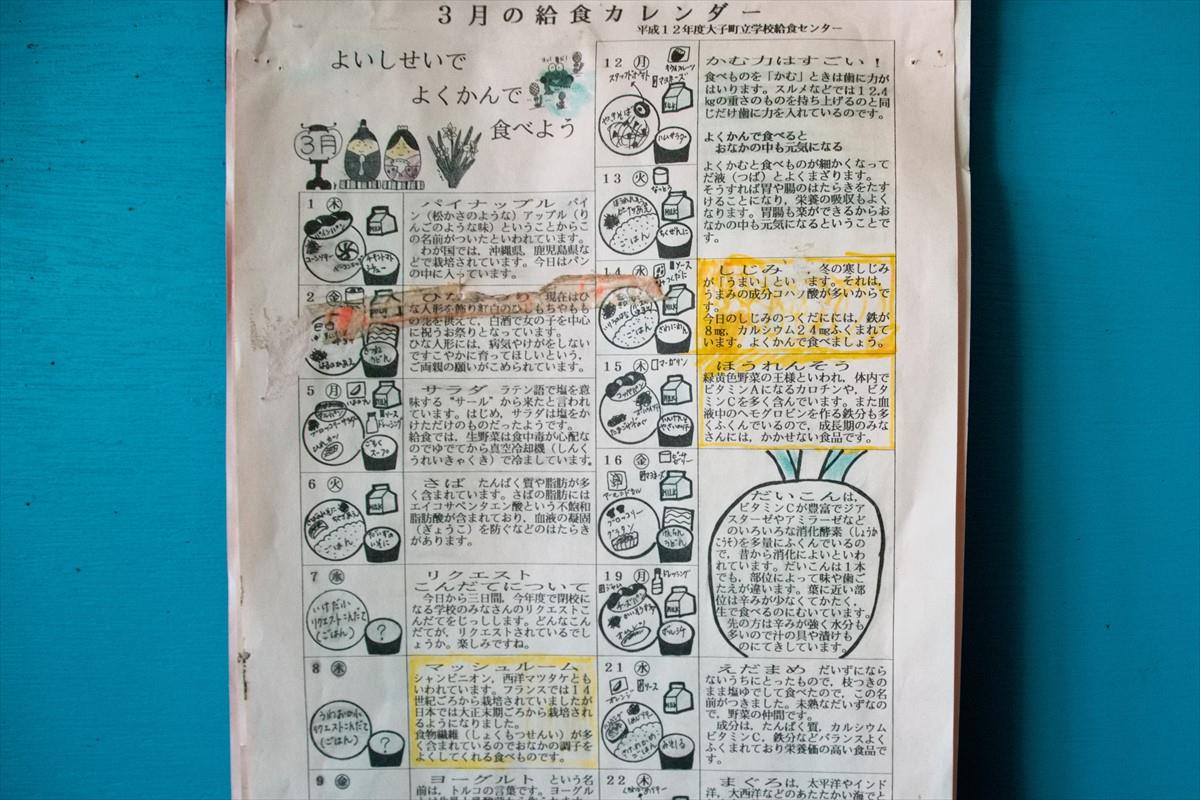 3月の給食カレンダー
平成12年度大子町立学校給食センター
よいしせいで
よくかんで
食べよう
3月
1 木
パイナップル パイ
ン（松かさのような）アップル（り
んごのような味）ということからこ
の名前がついたといわれています。
わが国では，沖縄県，鹿児島県な
どで栽培されています。今日はパン
の中に入っています。
MILK
2 金
現在はひ
な人形を飾り紅白のひしもちやもも
の花を供えて，白酒で女の子を中心
に祝うお祭となっています。
ひな人形には，病気やけがをしない
ですこやかに育ってほしいという，
ご両親の願いがこめられています。
5 月
サラダ ラテン語で塩を意
味する“サール”から来たと言われ
ています。はじめ，サラダは塩をか
けただけのものだったようです。
給食では，生野菜は食中毒が心配な
のでゆでてから真空冷却機（しんく
うれいきゃくき）で冷ましています。
MILK
ソース
ドレッシング
ブロッコリーサラダ
ごもく
スープ
6 火
さば たんぱく質や脂肪が多
く含まれています。さばの脂肪には
エイコサペンタエン酸という不飽和
脂肪酸が含まれており，血液の凝固
（ぎょうこ）を防ぐなどのはたらき
があります。
MILK
ごはん
7 水
リクエスト
こんだてについて
今日から三日間，今年度で閉校に
なる学校のみなさんのリクエストこ
んだてをじっしします。どんなこん
だてが，リクエストされているでし
ょうか。楽しみですね。
いけだ小
リクエストこんだて
（ごはん）
?
8 木
マッシュルーム
シャンピニオン，西洋マツタケとも
いわれています。フランスでは14
世紀ごろから栽培されていましたが
日本では大正末期ごろから栽培され
るようになりました。
食物繊維（しょくもつせんい）が多
く含まれているのでおなかの調子を
よくしてくれる食べものです。
リクエストこんだて
（ごはん）
?
9 金
ヨーグルト という名
前は，トルコの言葉です。ヨーグル
12 月
MILK
やきそば
ハムサラダ
かむ力はすごい！
食べものを「かむ」ときは歯に力が
はいります。スルメなどでは12.4
kgの重さのものを持ち上げるのと同
じだけ歯に力を入れているのです。
よくかんで食べると
おなかの中も元気になる
よくかむと食べものが細かくなって
だ液（つば）とよくまざります。
そうすれば胃や腸のはたらきをたす
けることになり，栄養の吸収もよく
なります。胃腸も楽ができるからお
なかの中も元気になるということで
す。
13 火
なっとう
MILK
ごはん
ちくぜんに
14 水
ソース
MILK
ごはん
さわにわん
しじみ
，冬の寒しじみ
が「うまい」とい
ます。それは，
うまみの成分コハク酸が多いからで
す。
今日のしじみのつくだににには，鉄が
8mg，カルシウム24mgふくまれて
います。よくかんで食べましょう。
15 木
マーガリン
コッペパン
MILK
ほうれんそう
緑黄色野菜の王様といわれ，体内で
ビタミンAになるカロチンや，ビタ
ミンCを多く含んでいます。また血
液中のヘモグロビンを作る鉄分も多
くふくんでいるので，成長期のみな
さんには，かかせない食品です。
16 金
MILK
ブロッコリー
グラタン
うどん
だいこんは，
ビタミンCが豊富でジア
スターゼやアミラーゼなど
のいろいろな消化酵素（しょうか
こうそ）を多量にふくんでいるの
で，昔から消化によいといわ
れています。だいこんは1本
でも，部位によって味や歯ご
たえが違います。葉に近い部
位は辛みが少なくてかたく，
生で食べるのにむいています。
先の方は辛みが強く水分も
多いので汁の具や漬けも
のにてきしています。
19 月
ドレッシング
チーズパン
MILK
オムレツ
21 水
ソース
オレンジ
MILK
ごはん
みそしる
えだまめ だいずになら
ないうちにとったもので，枝つきの
まま塩ゆでして食べたので，この名
前がつきました。未熟なだいずなの
で，野菜の仲間です。
成分は，たんぱく質，カルシウム
ビタミンC，鉄分などバランスよく
ふくまれており栄養価の高い食品で
す。
22 木
まぐろは，太平洋やインド
洋，大西洋などのあたたかい海でと